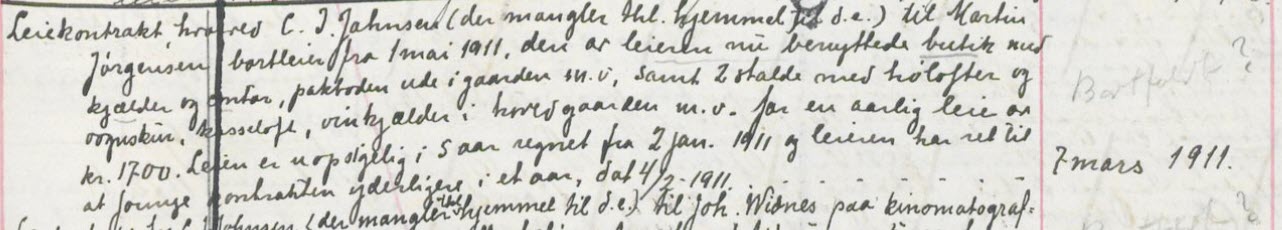 Leiekontrakt, hvorved C. J. Jahnsen (der mangler thl. hjemmel til d.e.) til Martin
Jørgensen bortleier fra 1 mai 1911, den av leieren nu benyttede butik med
kjælder og kontor, pakboden ude i gaarden m.v, samt 2 stalde med høilofter og
vognskur, kasseloft, vinkjælder i hovedgaarden m.v. for en aarlig leie av
kr. 1700. Leien er uopsigelig i 5 aar regnet fra 2 jan. 1911 og leieren har ret til
at forlenge kontrakten yderligere i et aar, dat 4/2-1911.
7 mars 1911.
Johnsen (der mangler thl. hjemmel til d.e.) til Joh. Widnes paa kinomatograf-
Bortfaldt?